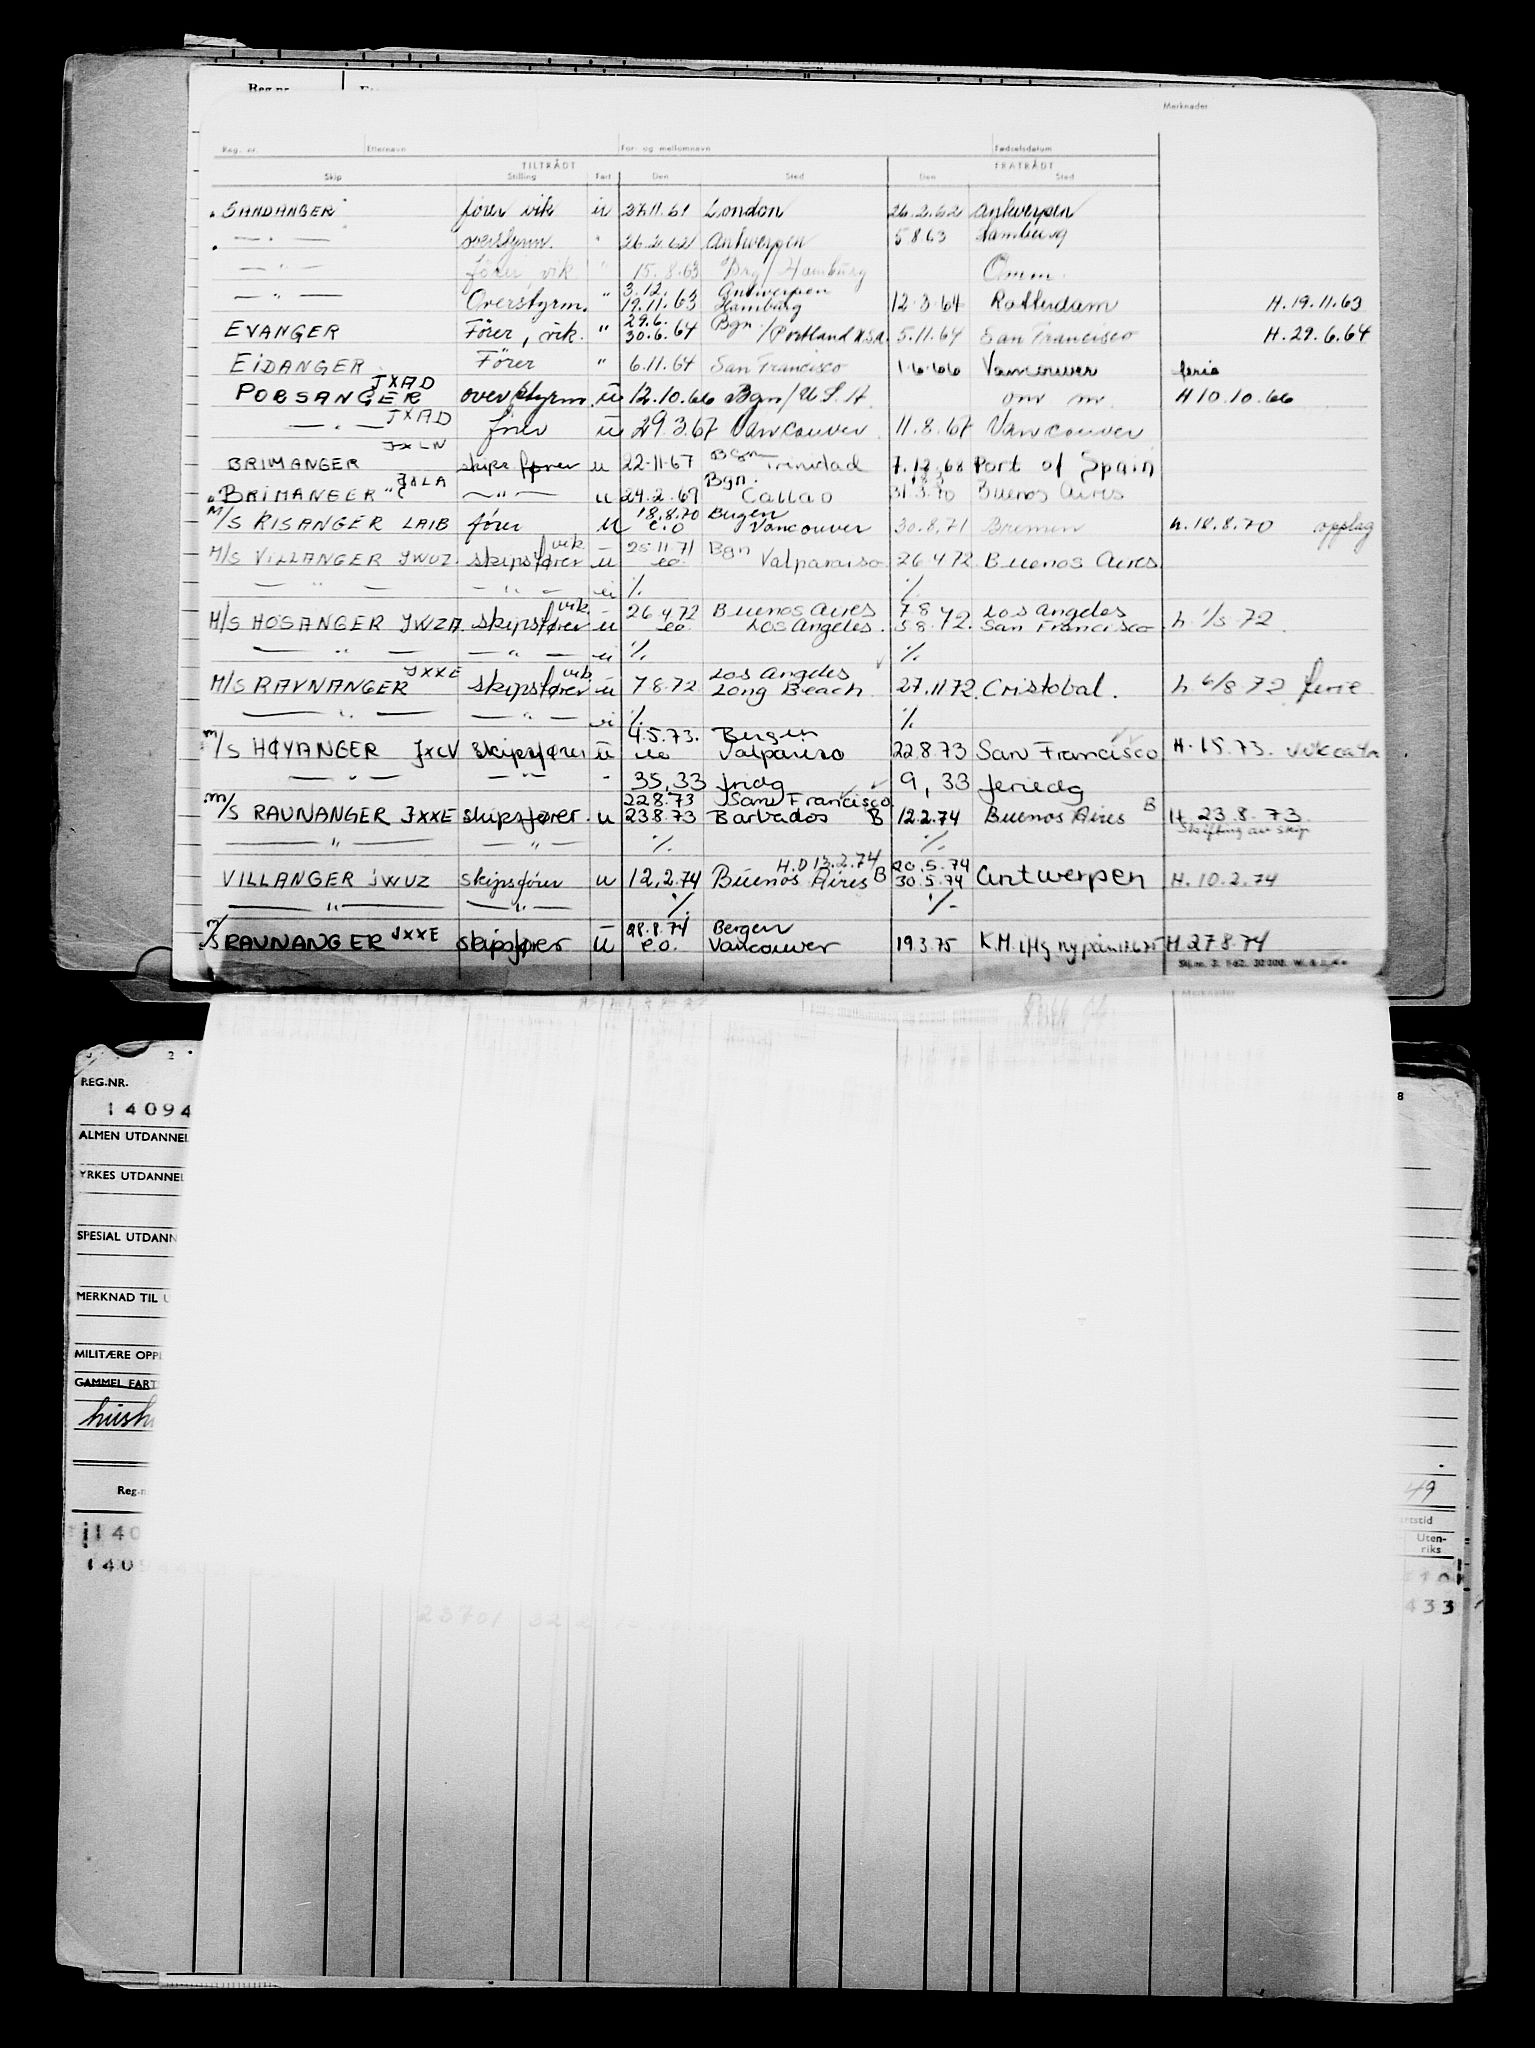 Reg.nr.
Merknader
Reg. nr. Etternavn For- og mellomnavn Fødselsdatum
TILTRÅDT FRATRÅDT
Skip Stilling Fart Den Sted Den Sted
"SANDANGER" fører vik u 27.11.61 London 26.2.62 Antwerpen
— " — overstyrm. " 26.2.62 Antwerpen 5 8 63 Hamburg
— " — fører, vik " 15.8.63 Brg/Hamburg Omm.
3.12. Antwerpen
— " — Overstyrm. " 19.11.63 Hamburg 12.3.64 Rotterdam H.19.11.63
29.6. Bgn.
EVANGER Förer, vik. " 30.6.64 /Portland U.S.A. 5.11.64 San Francisco H.29.6.64
EIDANGER Förer " 6.11.64 San Francisco 1.6.66 Vancouver ferie
JXAD
PORSANGER overstyrm. u 12.10.66 Bgn/U.S.A. om m. H 10.10.66
JXAD
— " — fører u 29.3.67 Vancouver 11.8.67 Vancouver
JXLN
BRIMANGER skips fører u 22.11.67 Bgn Trinidad 7.12.68 Port of Spain
Bgn.
"BRIMANGER" — " — u 24.2.69 Callao 31.3.70 Buenos Aires
18.8.70 Bergen
M/S RISANGER LAIB fører u e.o Vancouver 30.8.71 Bremen h.18.8.70 opplag
vik 25.11.71 Bgn
M/S VILLANGER JWUZ. skipsfører u eo Valparaiso 26 4 72 Buenos Aires
— " — — " — u ./. ./.
vik. 26 4 72 Buenos Aires 7 8 Los Angeles
M/S HOSANGER JWZA skipsfører u eo Los Angeles. 5 8 72. San Francisco h. 1/5 72.
— " — — " — u ./. ./.
JXXE vik Los Angeles
M/S RAVNANGER skipsfører u 7 8.72 Long Beach 27.11 72. Cristobal. h 6/8 72 ferie
— " — — " — u ./. ./.
4.5.73. Bergen
M/S HØYANGER JXCV skipsfører u eo Valpariso 22 8 73 San Francisco H. 1 5. 73.
— " — — " — - 35,33 fridg 9, 33 feriedg
22 8.73 San Francisco
M/S RAVNANGER JXXE skipsfører. u 23 8.73 Barbados B 12.2.74 Buenos Aires B H 23.8.73.
Skifting av skip
— " — — " — ./. ./.
H.D 13.2.74 20.5.74
VILLANGER JWUZ skipsfører u 12.2.74 Buenos Aires B 30.5.74 Antwerpen H.10.2.74
— " — — " — ./. ./.
28.8.74 Bergen
M/S RAVNANGER JXXE skipsfører u e.o. Vancouver 19.3.75 K.M. H.27.8.74
Merknader
REG.NR.
14094
ALMEN UTDANNEL
YRKES UTDANNEL
SPESIAL UTDANN
MERKNAD TIL U
MILITÆRE OPPL
GAMMEL FARTS
Reg.n
49
artstid
Uten-
riks
140
433
23701 32